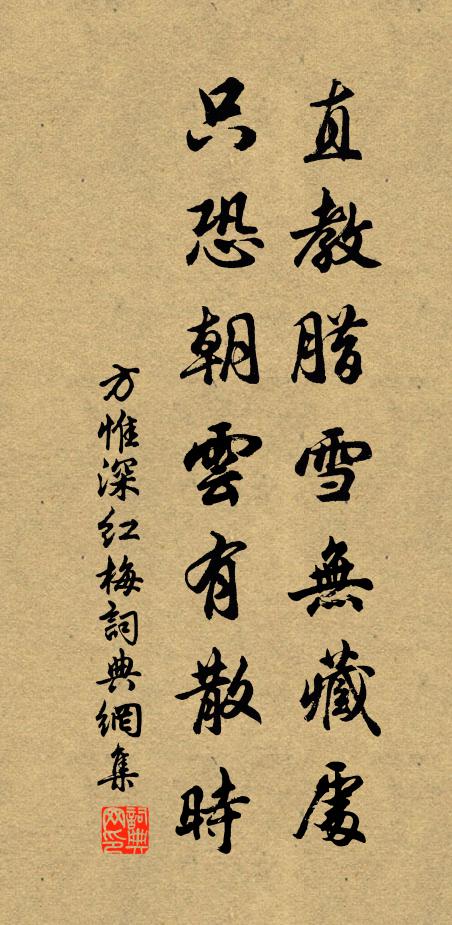 直教腊雪無藏處
只恐朝雲有散時
方惟深紅梅詞典網集
詞典網印